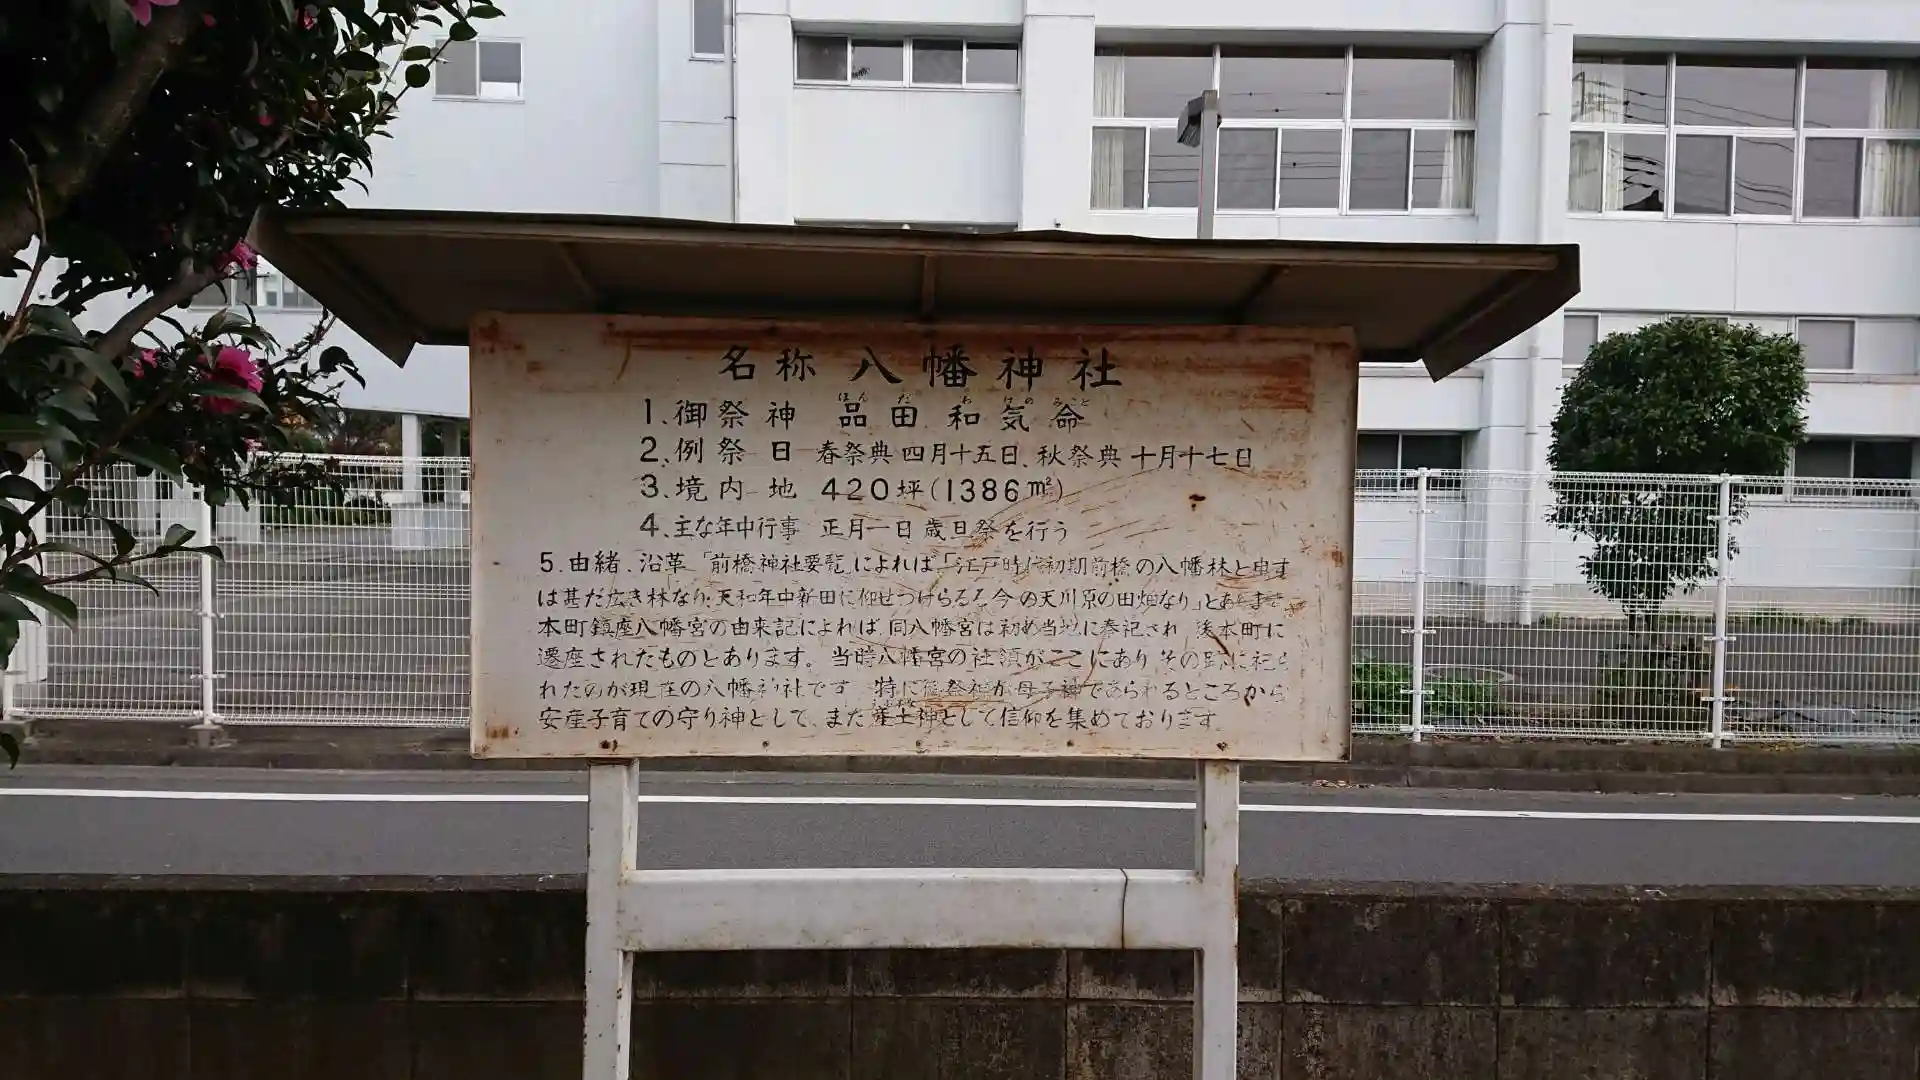 名称 八幡神社
1.御祭神 品田和気命
ほんだ わけのみこと
2.例祭日 春祭典四月十五日、秋祭典十月十七日
3.境内地 420坪(1386㎡)
4.主な年中行事 正月一日歳旦祭を行う
5.由緒、沿革 「前橋神社要覧」によれば「江戸時代初期前橋の八幡林と申す
は甚だ広き林なり、天和年中新田に仰せつけらるる今の天川原の田畑なり」とあります。
本町鎮座八幡宮の由来記によれば、同八幡宮は初め当地に奉祀され 後本町に
遷座されたものとあります。当時八幡宮の社領がここにあり その跡に祀ら
れたのが現在の八幡神社です 特に御祭神が母子神であられるところから
安産子育ての守り神として、また産土神として信仰を集めております。